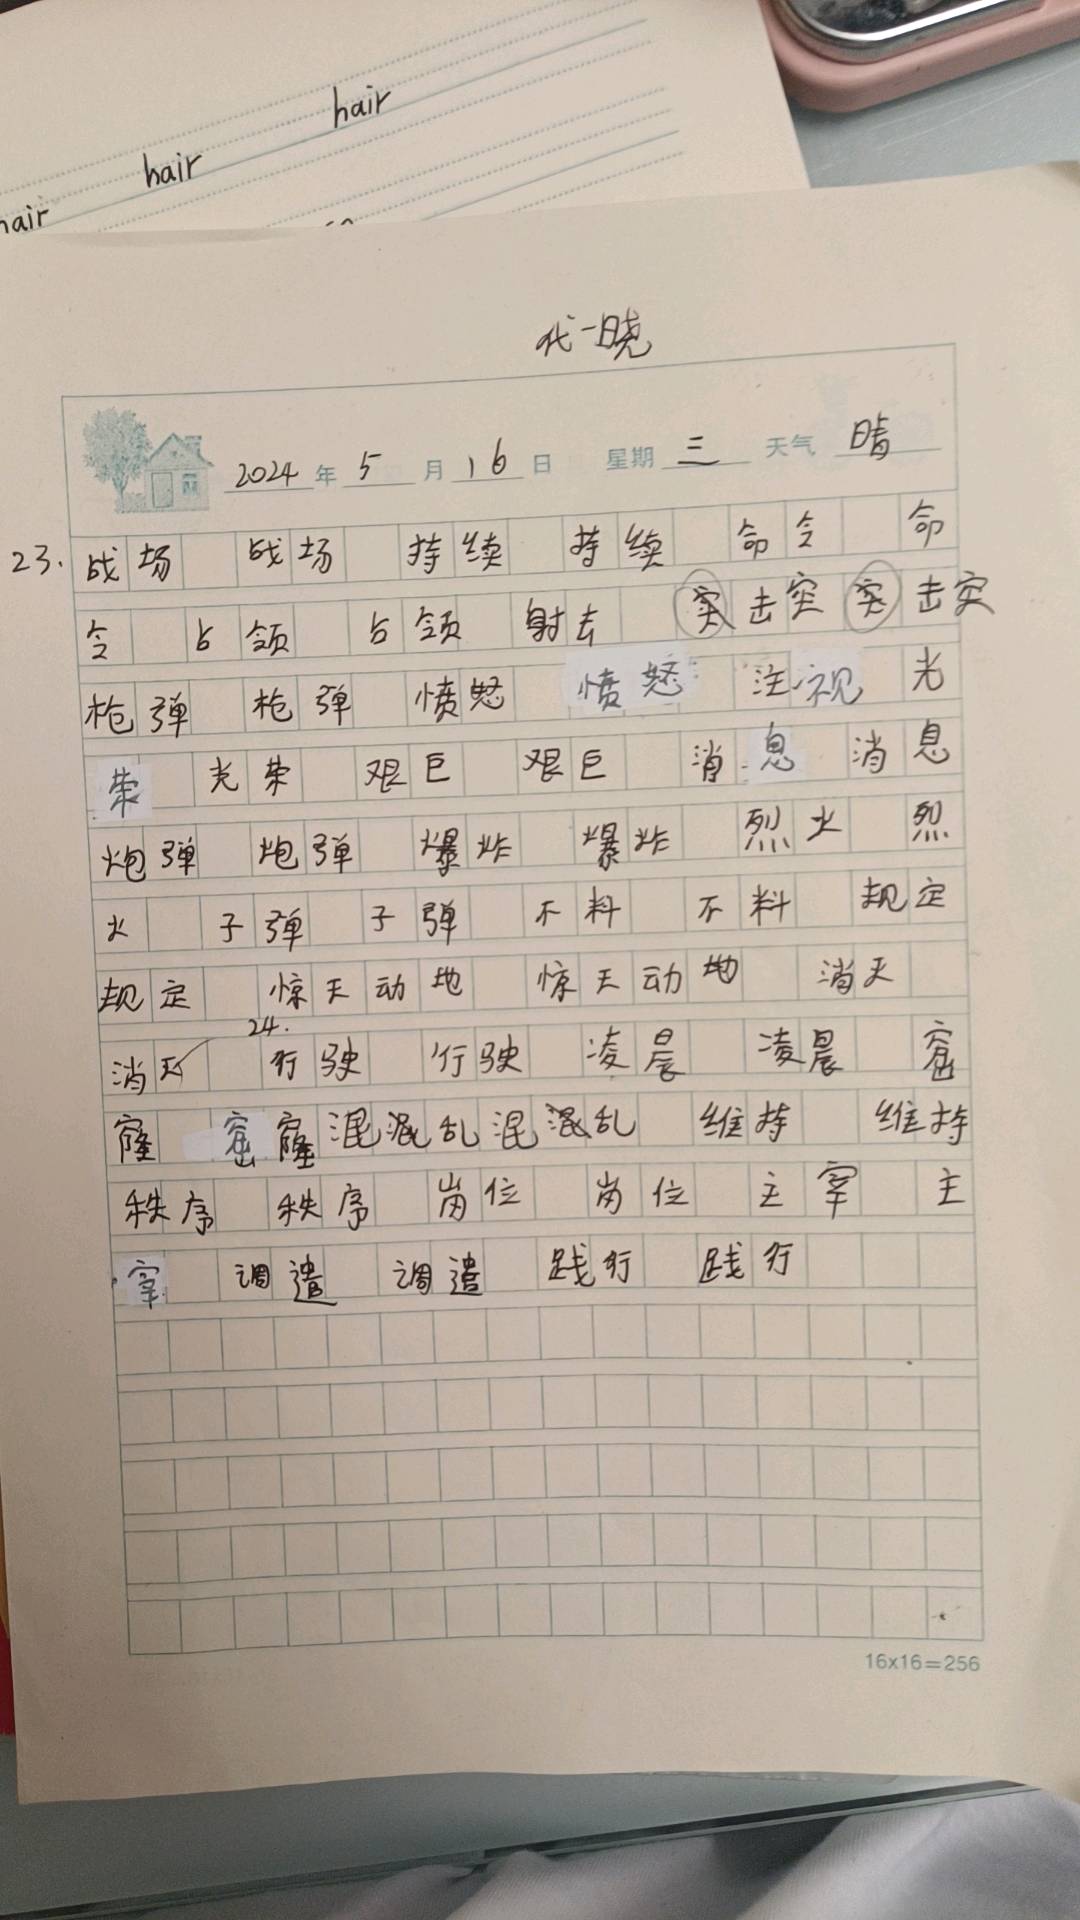 hair
hair
hair
代一晓
2024年5月16日 星期三 天气 晴
23. 战场 战场 持续 持续 命令 命
令 占领 占领 射击 突击突 突击突
枪弹 枪弹 愤怒 愤怒 注视 光
荣 光荣 艰巨 艰巨 消息 消息
炮弹 炮弹 爆炸 爆炸 烈火 烈
火 子弹 子弹 不料 不料 规定
规定 惊天动地 惊天动地 消灭
消灭 24. 行驶 行驶 凌晨 凌晨 窟
窿 窟窿 混混乱 混混乱 维持 维持
秩序 秩序 岗位 岗位 主宰 主
宰 调遣 调遣 践行 践行
16x16=256